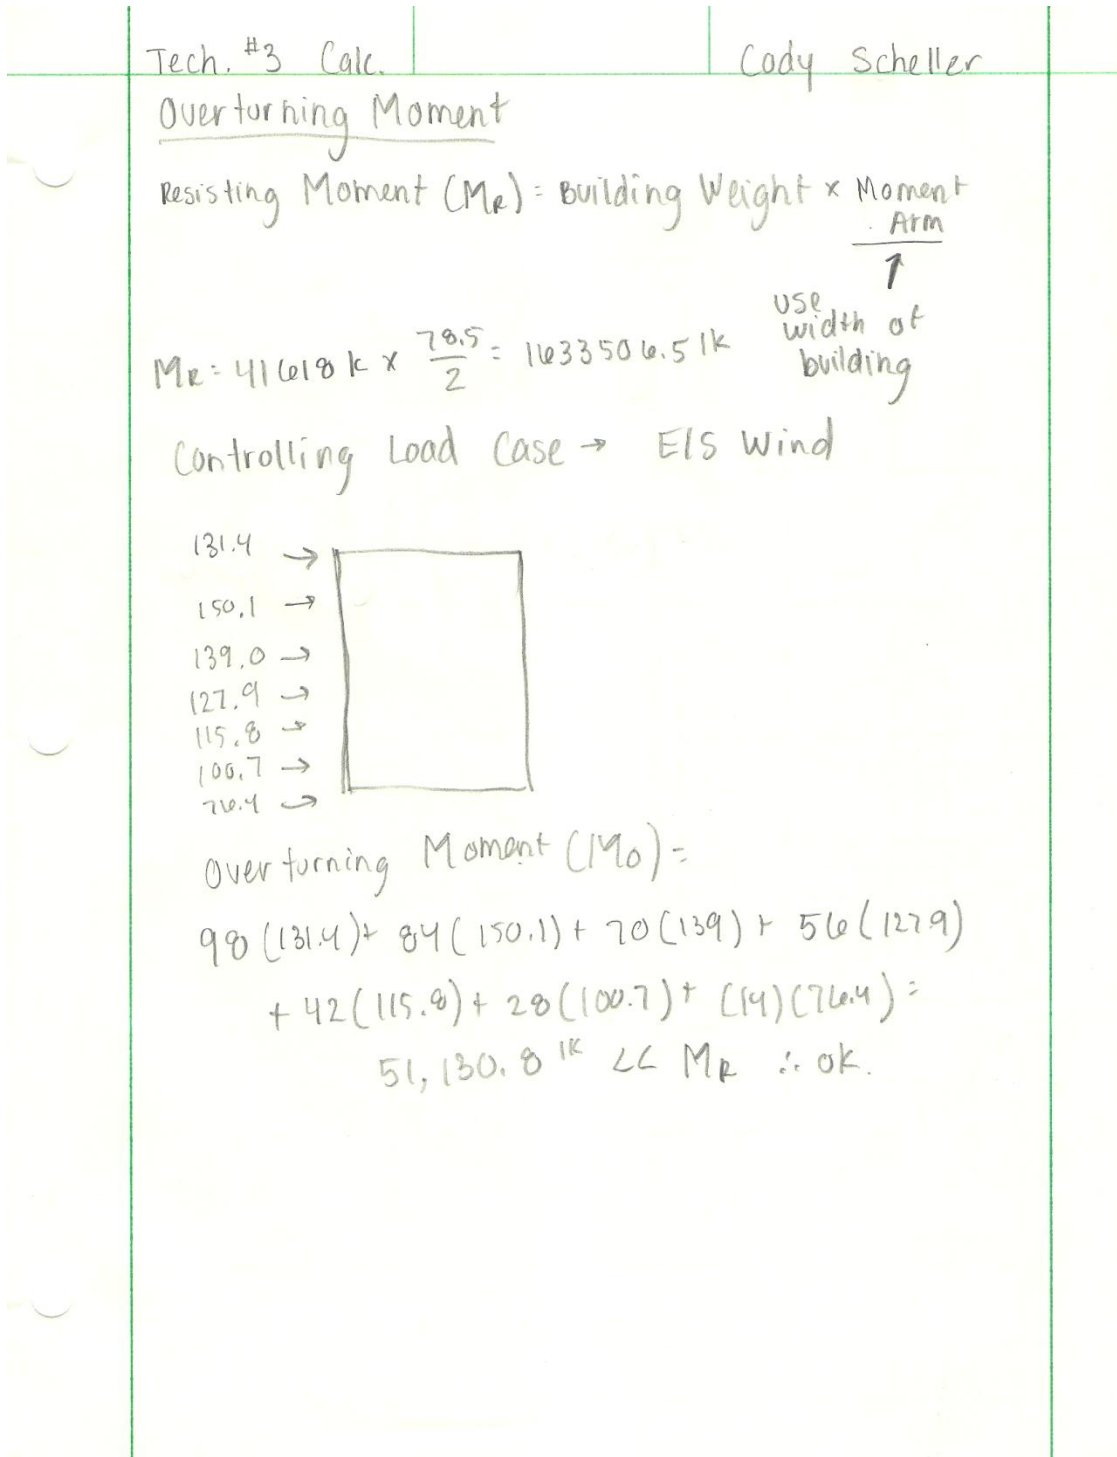 Tech. #3 Calc.
Cody Scheller
Overturning Moment
Resisting Moment (MR) = Building Weight x Moment
Arm
↑
use
width of
building
MR = 41618 k x 78.5/2 = 1633506.5 1k
Controlling Load Case → E/S Wind
131.4 →
150.1 →
139.0 →
127.9 →
115.8 →
100.7 →
76.4 →
Overturning Moment (Mo) =
98 (131.4) + 84 (150.1) + 70 (139) + 56 (127.9)
+ 42 (115.8) + 28 (100.7) + (14) (76.4) =
51,130.8 1k << MR ∴ ok.